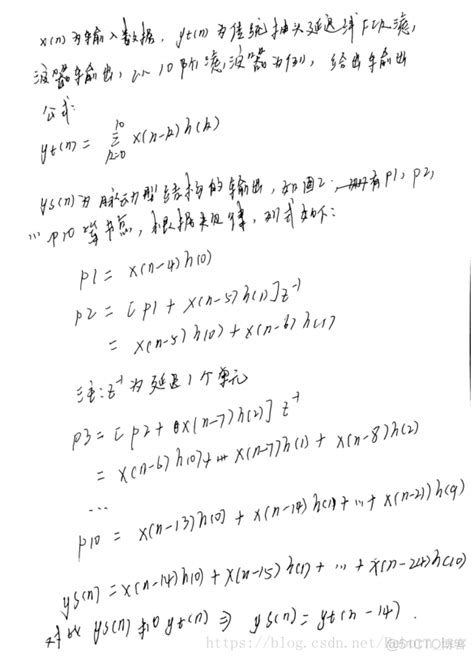 x(n)为输入数据，yt(n)为传统抽头延迟线FIR滤
波器输出，以10阶滤波器为例，给出输出
公式：
yt(n) = \sum_{k=0}^{10} x(n-k)h(k)
ys(n)为脉动型结构的输出，如图2，有p1，p2，
… p10等节点，根据其规律，列式如下：
p1 = x(n-4)h(0)
p2 = [p1 + x(n-5)h(1)]z^{-1}
= x(n-5)h(0) + x(n-6)h(1)
注：z^{-1}为延迟1个单元
p3 = [p2 + x(n-7)h(2)]z^{-1}
= x(n-6)h(0) + x(n-7)h(1) + x(n-8)h(2)
…
p10 = x(n-13)h(0) + x(n-14)h(1) + … + x(n-22)h(9)
ys(n) = x(n-14)h(0) + x(n-15)h(1) + … + x(n-24)h(10)
对比ys(n)和yt(n) ⇒ ys(n) = yt(n-14).
@51CTO博客